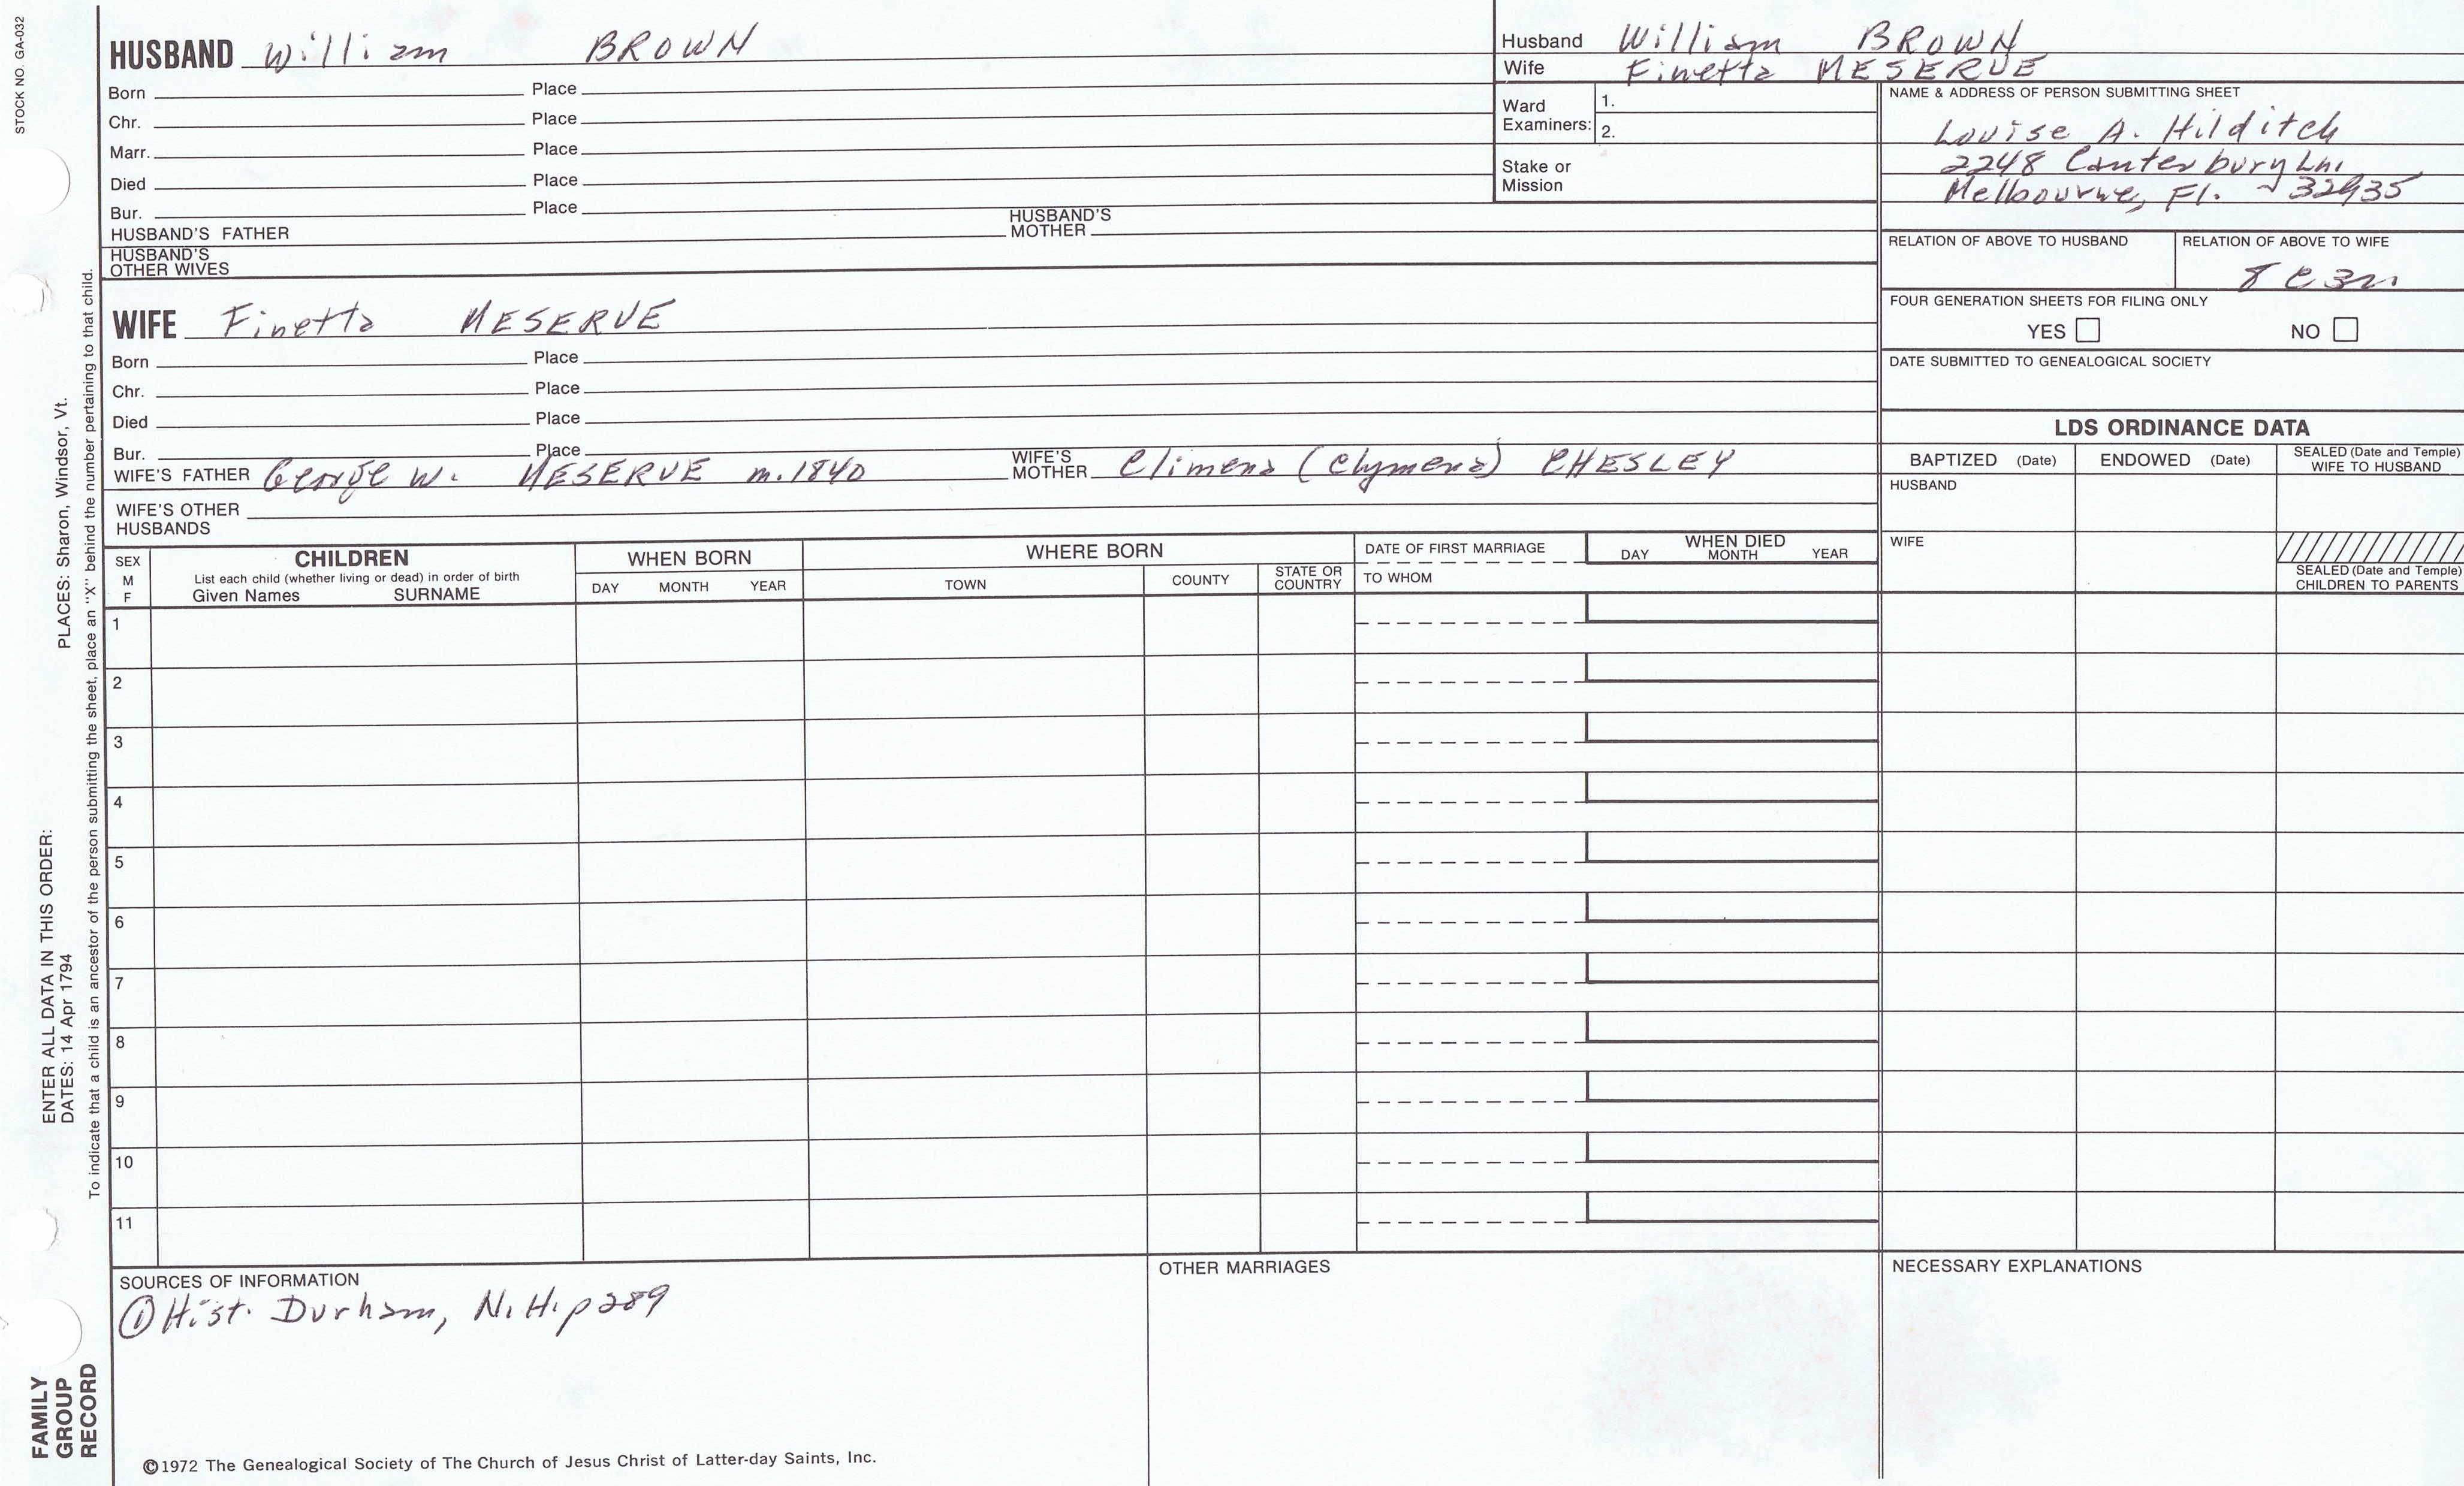 STOCK NO. GA-032
HUSBAND William BROWN
Born Place
Chr. Place
Marr. Place
Died Place
Bur. Place
HUSBAND'S FATHER HUSBAND'S MOTHER
HUSBAND'S OTHER WIVES
Husband William BROWN
Wife Finetta MESERVE
Ward Examiners: 1.
2.
Stake or Mission
NAME & ADDRESS OF PERSON SUBMITTING SHEET
Louise A. Hilditch
2248 Canterbury Ln.
Melbourne, Fl. 32935
RELATION OF ABOVE TO HUSBAND RELATION OF ABOVE TO WIFE
8 C 3r.
FOUR GENERATION SHEETS FOR FILING ONLY
YES NO
DATE SUBMITTED TO GENEALOGICAL SOCIETY
WIFE Finetta MESERVE
Born Place
Chr. Place
Died Place
Bur. Place
WIFE'S FATHER George W. MESERVE m. 1840 WIFE'S MOTHER Climena (Clymena) CHESLEY
WIFE'S OTHER HUSBANDS
LDS ORDINANCE DATA
BAPTIZED (Date) ENDOWED (Date) SEALED (Date and Temple) WIFE TO HUSBAND
HUSBAND
WIFE
SEALED (Date and Temple) CHILDREN TO PARENTS
SEX M F
CHILDREN
List each child (whether living or dead) in order of birth
Given Names SURNAME
WHEN BORN
DAY MONTH YEAR
WHERE BORN
TOWN COUNTY STATE OR COUNTRY
DATE OF FIRST MARRIAGE
TO WHOM
WHEN DIED
DAY MONTH YEAR
1
2
3
4
5
6
7
8
9
10
11
SOURCES OF INFORMATION
① Hist. Durham, N.H. p 289
OTHER MARRIAGES
NECESSARY EXPLANATIONS
©1972 The Genealogical Society of The Church of Jesus Christ of Latter-day Saints, Inc.
FAMILY GROUP RECORD
ENTER ALL DATA IN THIS ORDER:
DATES: 14 Apr 1794 PLACES: Sharon, Windsor, Vt.
To indicate that a child is an ancestor of the person submitting the sheet, place an "X" behind the number pertaining to that child.